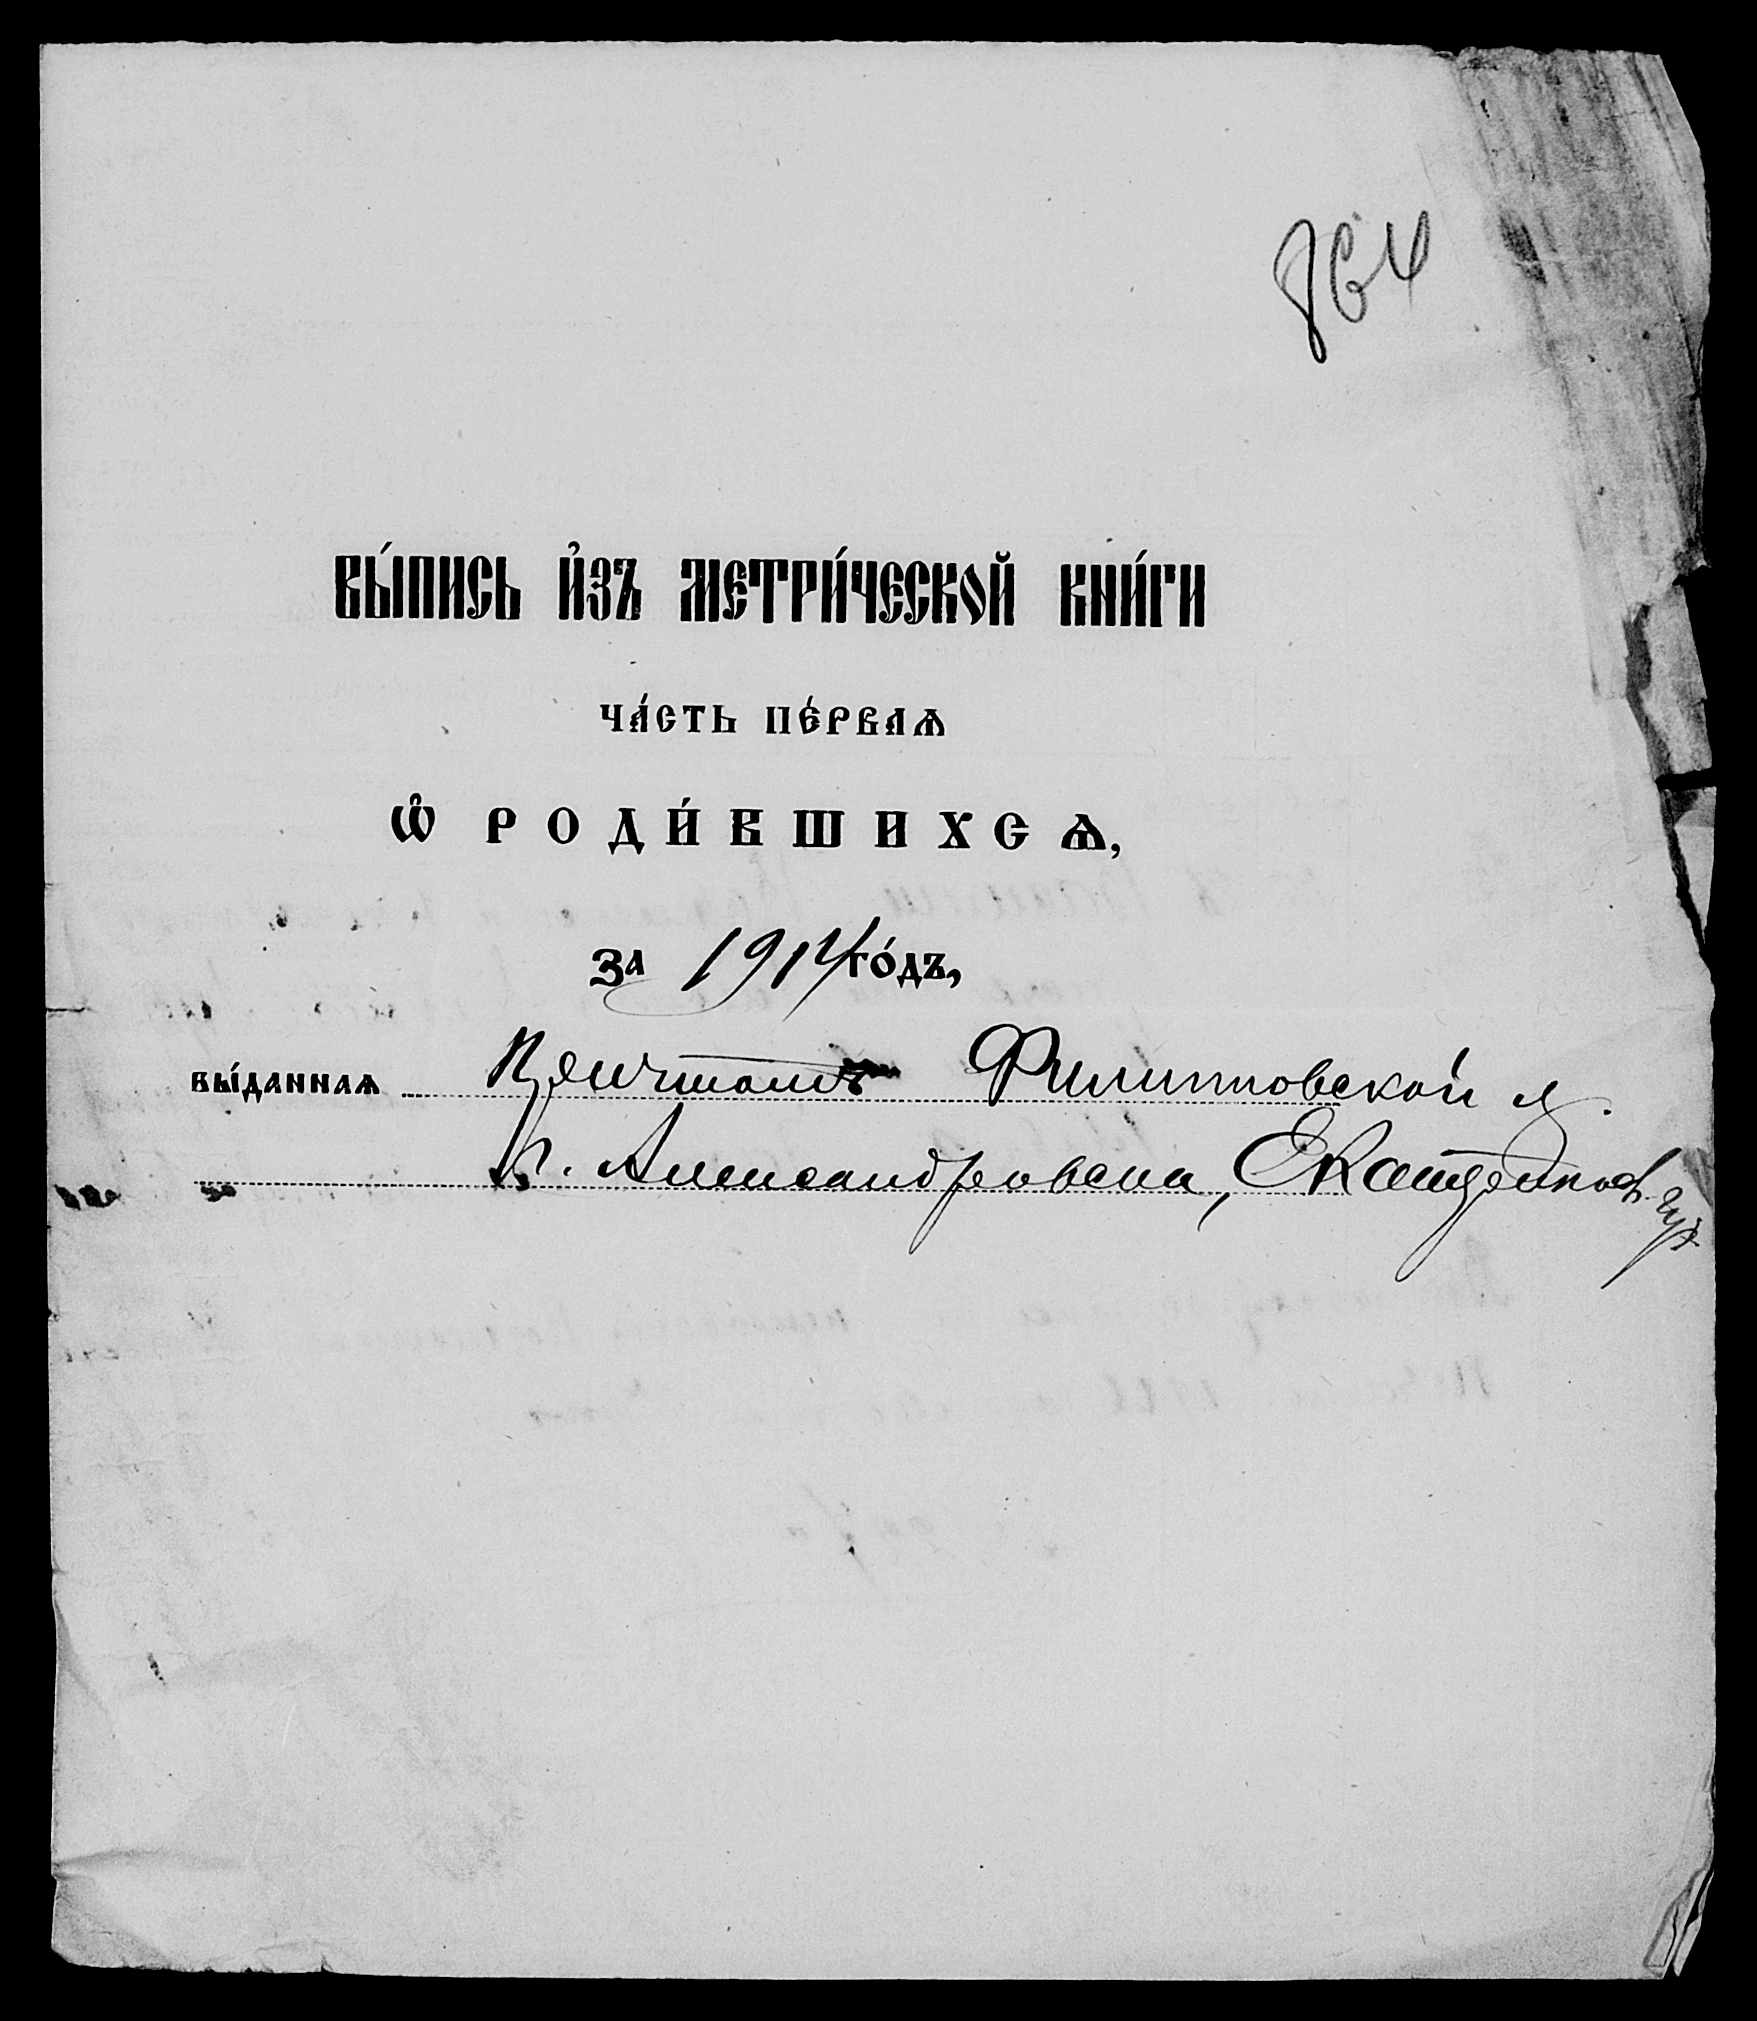 864
Вы́пись и҆зъ метри́ческой кни́ги
ча́сть пе́рвая
Ѡ҆ роди́вшихсѧ,
за 1914 го́дъ,
вы́даннаѧ Причтомъ Филипповской ц.
г. Александровска, Екатеринос. губ.